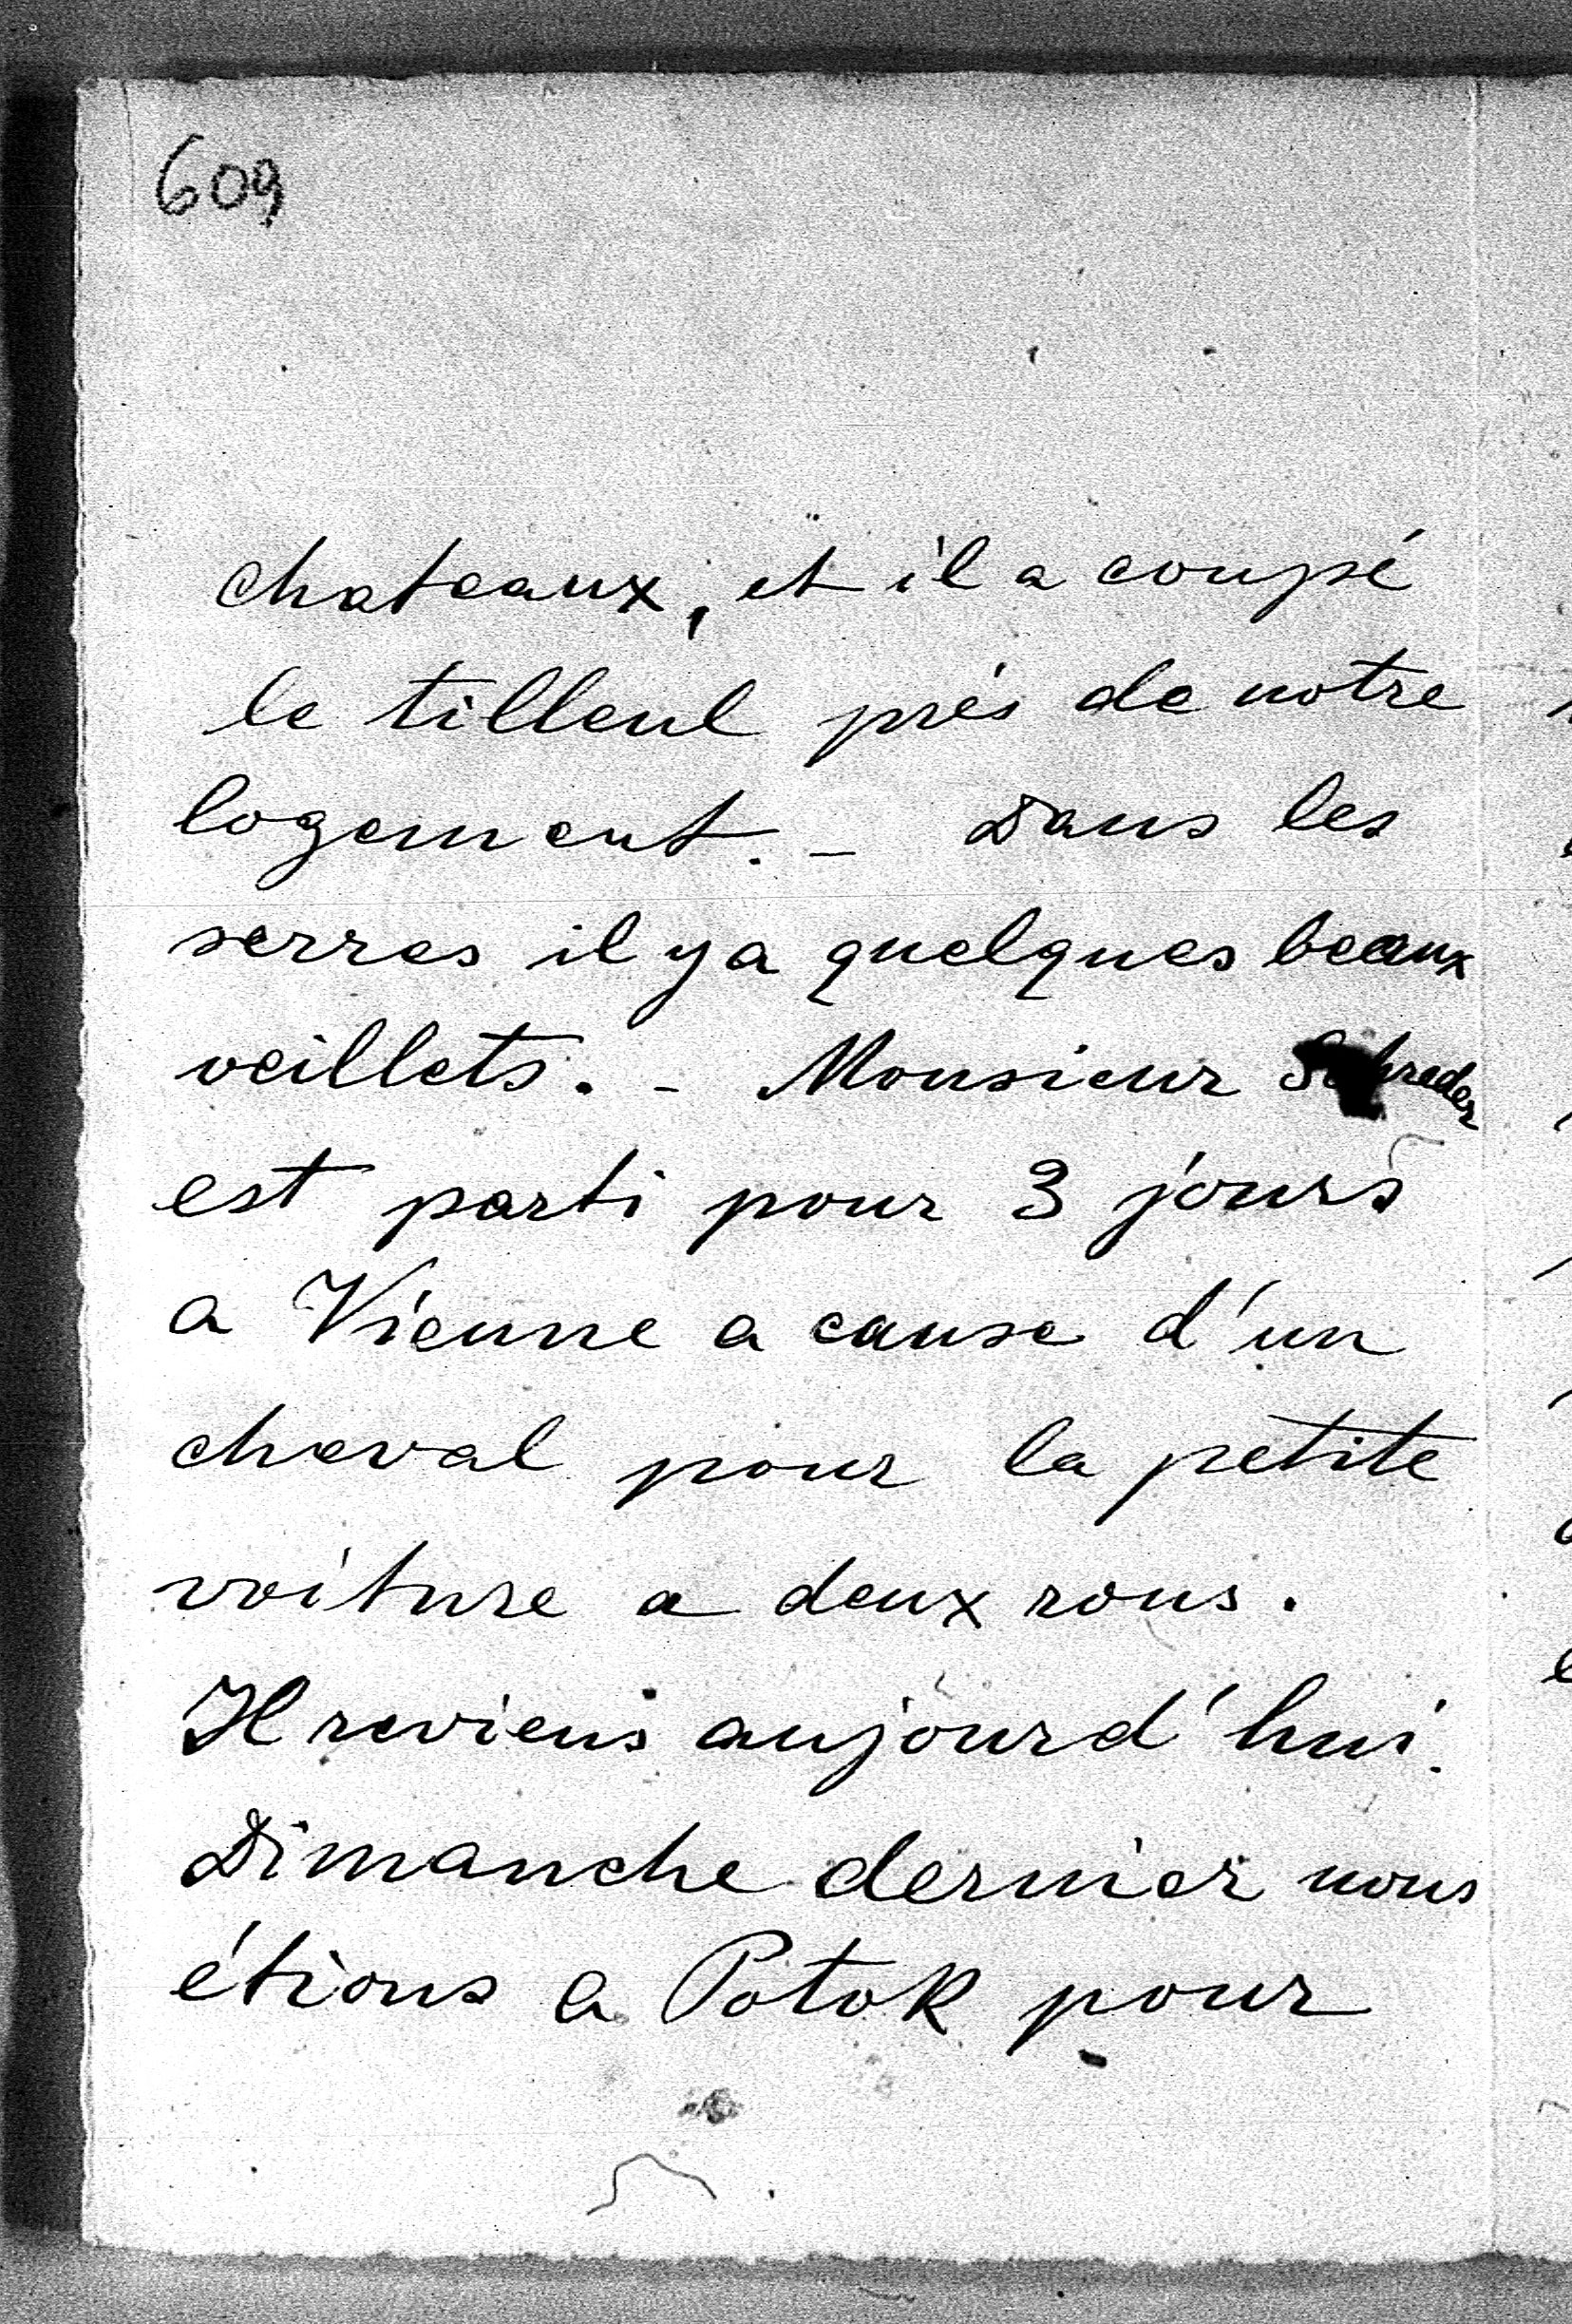 609
chateaux, et il a coupé
le tilleul près de notre
logement. _ Dans les
serres il y a quelques beaux
oeillets. - Monsieur Schreder
est parti pour 3 jours
a Vienne a cause d'un
cheval pour la petite
voiture a deux rous.
Il reviens aujourd'hui.
Dimanche dernier nous
étions a Potok pour